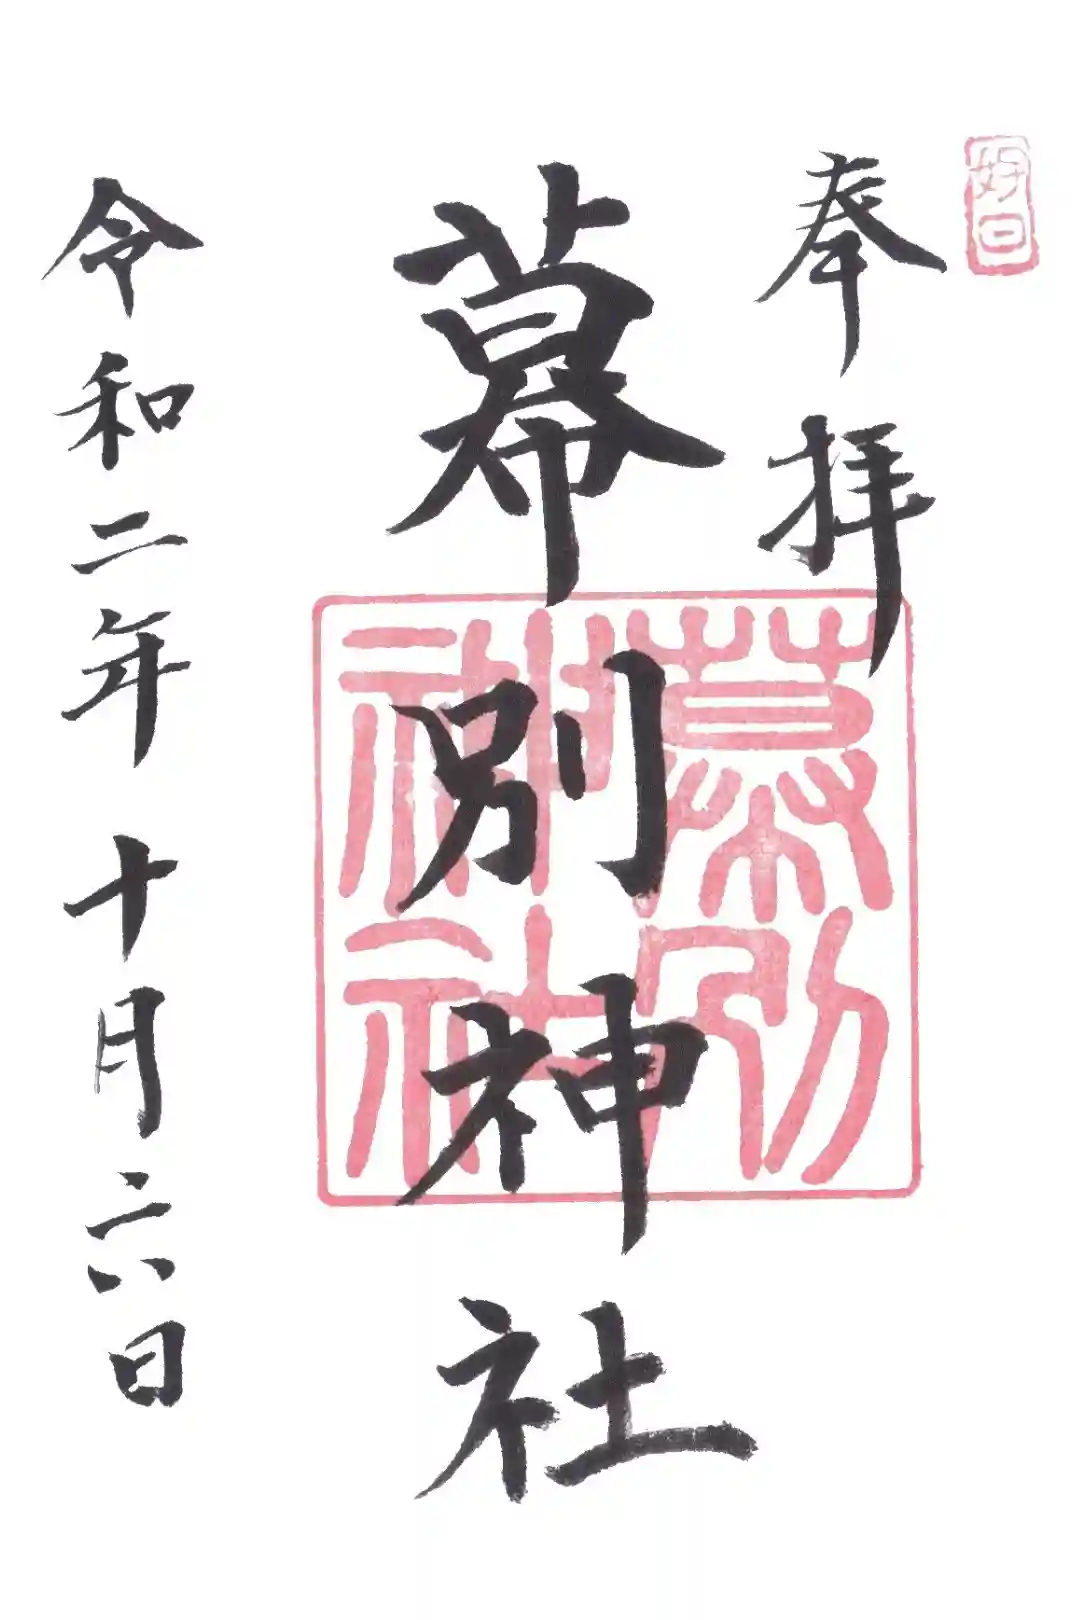 好日
奉拝
幕別神社
幕別神社
令和二年 十月六日